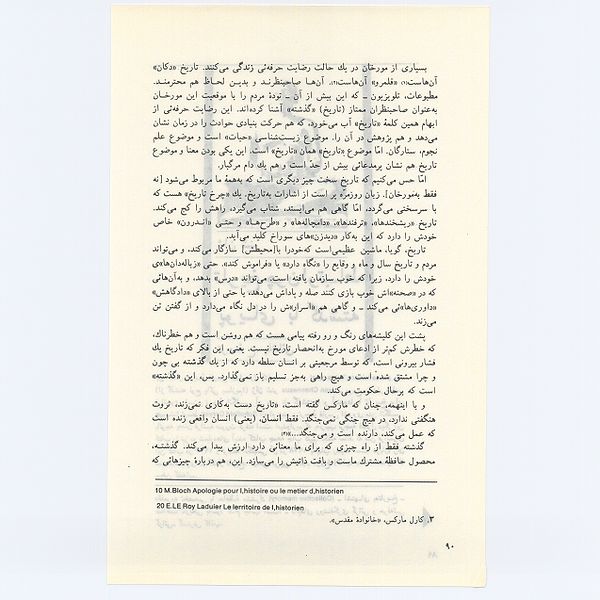 بسیاری از مورخان در یك حالت رضایت حرفه‌ئی زندگی می‌کنند. تاریخ «دکان»
آن‌هاست(۱) «قلمرو» آن‌هاست(۲). آن‌ها صاحبنظرند و بدین لحاظ هم محترمند.
مطبوعات، تلویزیون ــ که این بیش از آن ــ تودهٔ مردم را با موقعیت این مورخان
به‌عنوان صاحبنظران ممتاز (تاریخ) «گذشته» آشنا کرده‌اند. این رضایت حرفه‌ئی از
ابهام همین کلمهٔ «تاریخ» آب می‌خورد، که هم حرکت بنیادی حوادث را در زمان نشان
می‌دهد و هم پژوهش در آن را. موضوع زیست‌شناسی «حیات» است و موضوع علم
نجوم، ستارگان. امّا موضوع «تاریخ» همان «تاریخ» است. این یکی بودن معنا و موضوع
تاریخ هم نشان پرمدعائی بیش از حدّ است و هم یك دام مرگبار.
امّا حس می‌کنیم که تاریخ سخت چیز دیگری است که به‌همهٔ ما مربوط می‌شود [نه
فقط به‌مورخان]. زبان روزمرّه پر است از اشارات به‌تاریخ. یك «چرخ تاریخ» هست که
با سرسختی می‌گردد، امّا گاهی هم می‌ایستد، شتاب می‌گیرد، راهش را کج می‌کند.
تاریخ «ریشخندها»، «ترفندها»، «دامچاله‌ها» و «طرح‌ها» و حتی «اندرون» خاص
خودش را دارد که این به‌کار «دیدزن»های سوراخ کلید می‌آید.
تاریخ، گویا، ماشین عظیمی‌است که‌خودرا با[محیطش] سازگار می‌کند، و می‌تواند
مردم و تاریخ سال و ماه و وقایع را «نگاه دارد» یا «فراموش کند». حتی «زباله‌دان»ی
خودش را دارد، زیرا که خوب سازمان یافته است. می‌تواند «درس» بدهد، و به‌آن‌هائی
که در «صحنه»اش خوب بازی کنند صله و پاداش می‌دهد، یا حتی از بالای «دادگاهش»
«داوری‌ها»ئی می‌کند ــ و گاهی هم «اسرار»ش را در دل نگاه می‌دارد و از گفتن تن
می‌زند.
پشت این کلیشه‌های رنگ و رو رفته پیامی هست که هم روشن است و هم خطرناك،
که خطرش کم‌تر از ادعای مورخ به‌انحصار تاریخ نیست. یعنی، این فکر که تاریخ یك
فشار بیرونی است، که توسط مرجعیتی بر انسان سلطه دارد که از یك گذشته بی چون
و چرا مشتق شده است و هیچ راهی به‌جز تسلیم باز نمی‌گذارد. پس، این «گذشته»
است که برحال حکومت می‌کند.
و با اینهمه، چنان که مارکس گفته است، «تاریخ دست به‌کاری نمی‌زند، ثروت
هنگفتی ندارد، در هیچ جنگی نمی‌جنگد. فقط انسان، (یعنی) انسان واقعی زنده است
که عمل می‌کند، دارنده است و می‌جنگد...»(۳).
گذشته فقط از راه چیزی که برای ما معنائی دارد ارزش پیدا می‌کند. گذشته،
محصول حافظهٔ مشترك ماست و بافت ذاتیش را می‌سازد. این، هم دربارهٔ چیزهائی که
10 M.Bloch Apologie pour l,histoire ou le metier d,historien
20 E.LE Roy Laduier Le lerritoire de l,historien
۳. کارل مارکس، «خانوادهٔ مقدس».
۹۰